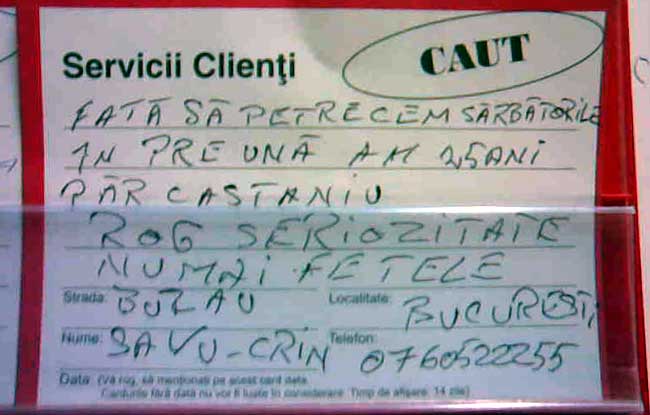 Servicii Clienţi
CAUT
FATĂ SĂ PETRECEM SĂRBĂTORILE
ÎN PREUNĂ AM 25ANI
PĂR CASTANIU
ROG SERIOZITATE
NUMAI FETELE
Strada: BUZAU Localitate: BUCUREȘTI
Nume: SAVU-CRIN Telefon: 0760522255
Data: (Vă rog, să menţionaţi pe acest card data.
Cardurile fără dată nu vor fi luate în considerare. Timp de afişare: 14 zile)